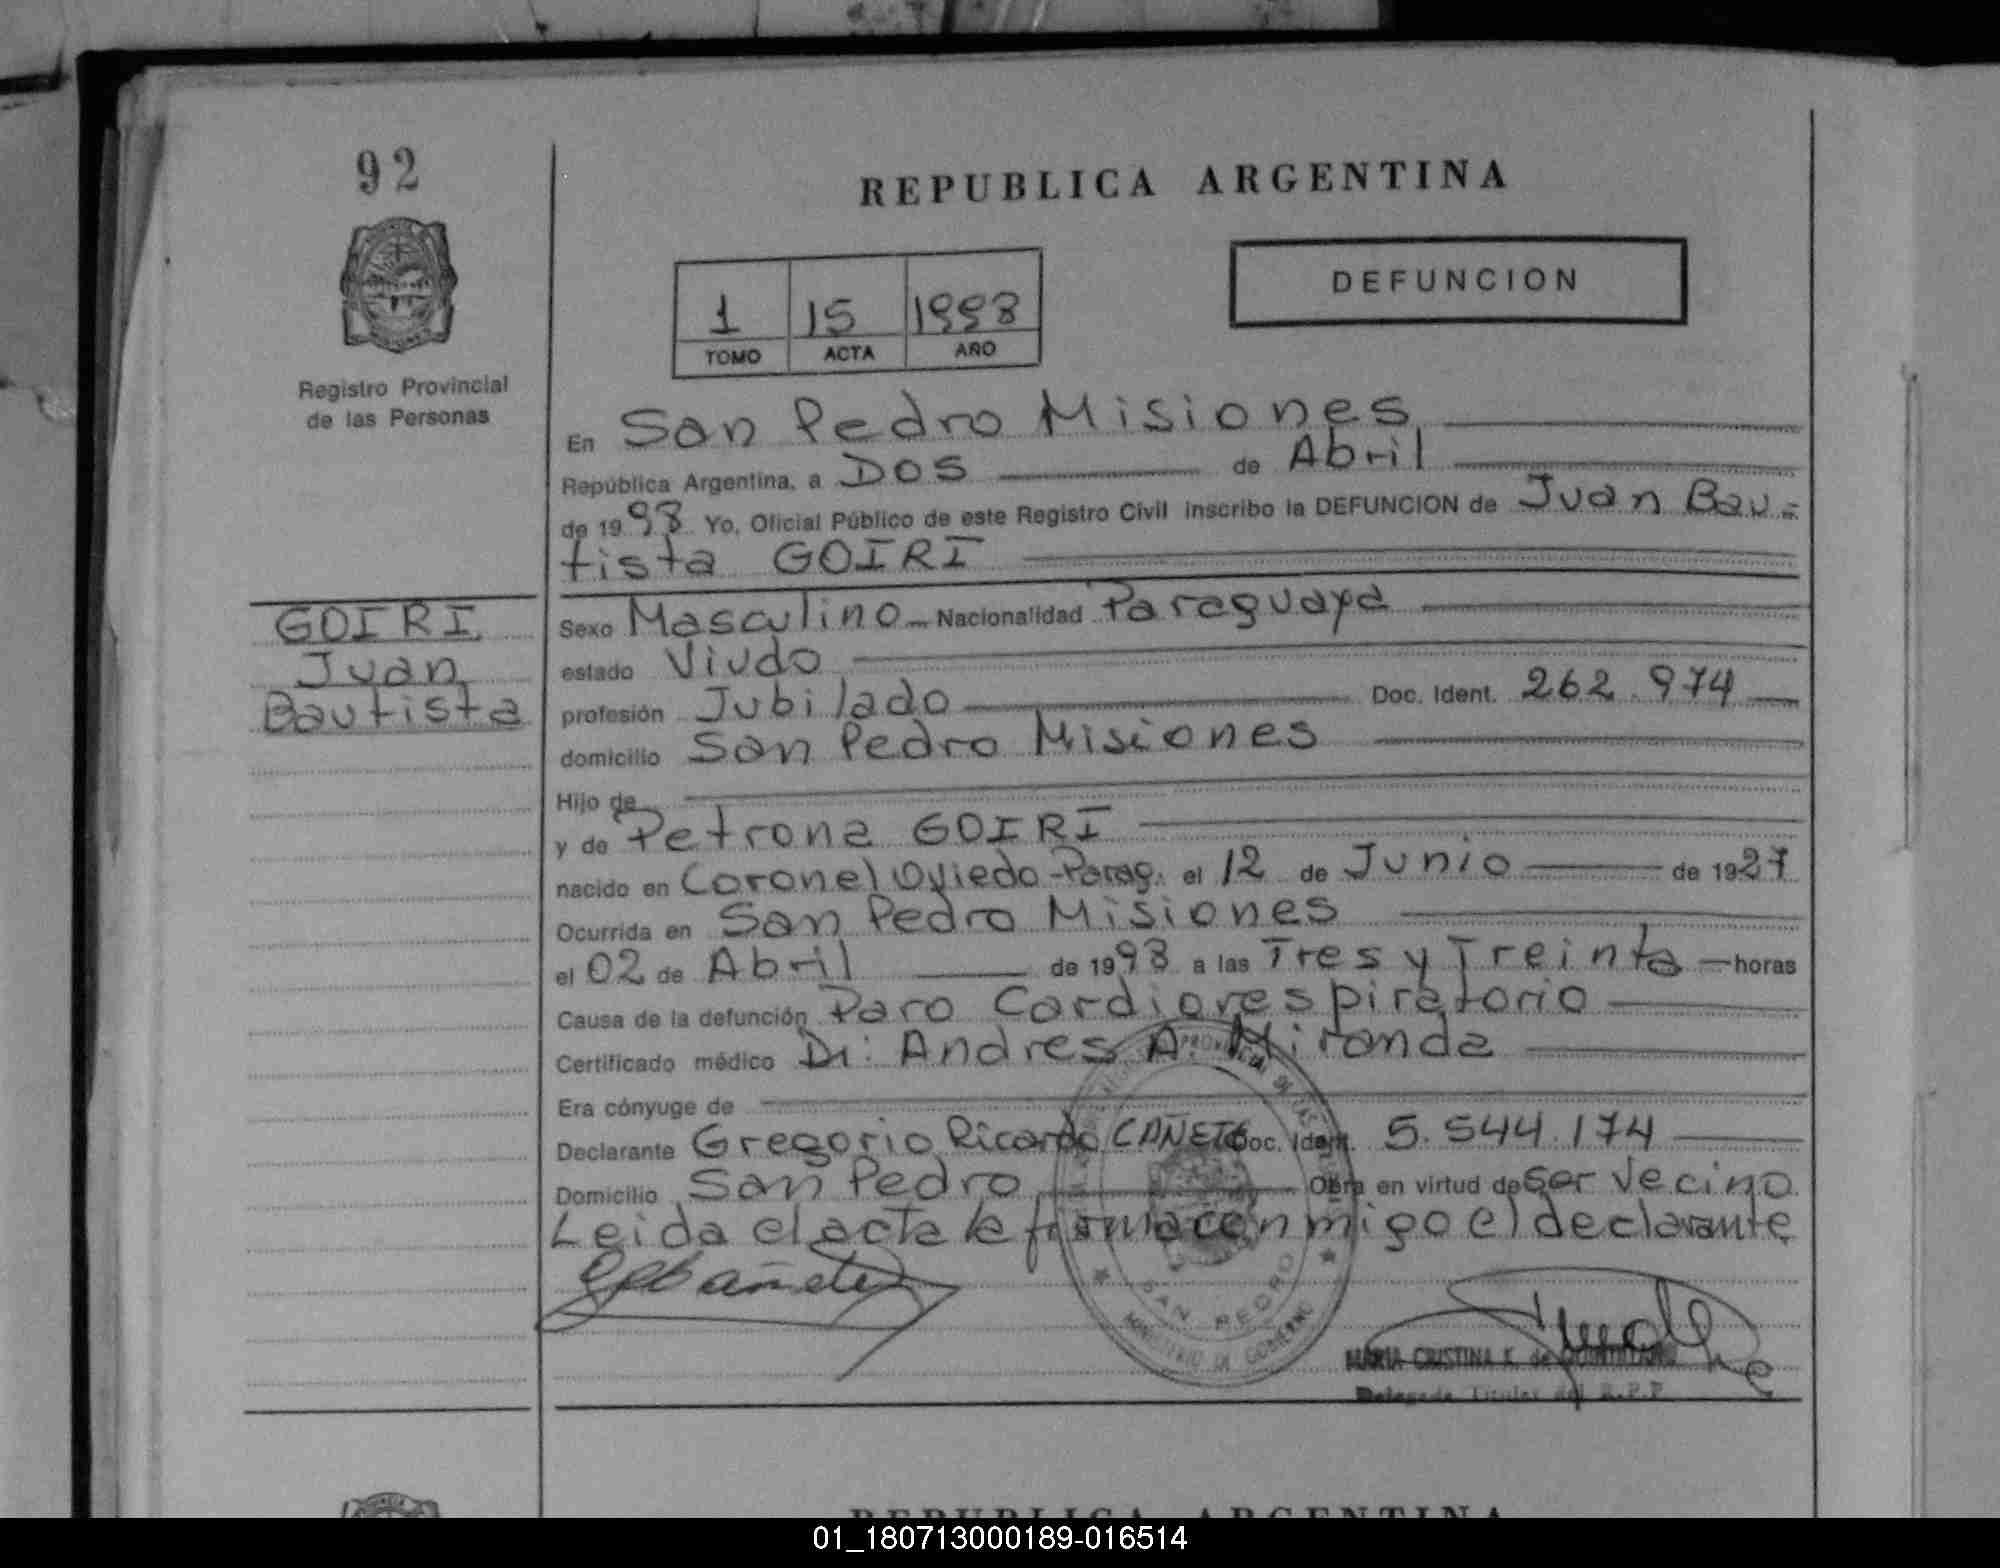 92
REPUBLICA ARGENTINA
DEFUNCION
1 15 1998
TOMO ACTA AÑO
Registro Provincial
de las Personas
En San Pedro Misiones
República Argentina, a DOS de Abril
de 1998 Yo, Oficial Público de este Registro Civil inscribo la DEFUNCION de Juan Bau-
tista GOIRI
GOIRI
Juan
Bautista
Sexo Masculino Nacionalidad Paraguaya
estado Viudo
profesión Jubilado Doc. Ident. 262.974
domicilio San Pedro Misiones
Hijo de
y de Petrona GOIRI
nacido en Coronel Oviedo-Parag. el 12 de Junio de 1927
Ocurrida en San Pedro Misiones
el 02 de Abril de 1998 a las Tres y Treinta horas
Causa de la defunción Paro Cardiorespiratorio
Certificado médico Dr: Andres A. Miranda
Era cónyuge de
Declarante Gregorio Ricardo CAÑETE Doc. Ident. 5.544.174
Domicilio San Pedro Obra en virtud de Ser Vecino
Leida el acta la firma conmigo el declarante
SAN PEDRO
MINISTERIO DE GOBIERNO
MARIA CRISTINA K. de
Delegada Titular del R.P.P
REPUBLICA ARGENTINA
01_180713000189-016514